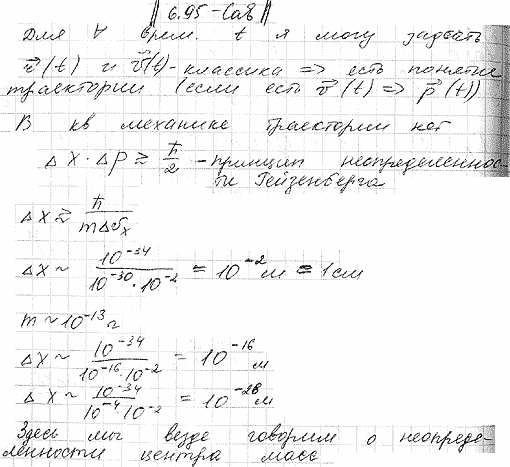 6.95 - Сав
Для ∀ врем. t я могу задать
r⃗(t) и v⃗(t) - классика => есть понятие
траектории (если есть v⃗(t) => p⃗(t))
В кв механике траектории нет
Δx·Δp ≳ ħ/2 - принцип неопределеннос-
ти Гейзенберга
Δx ≳ ħ/(mΔv_x)
Δx ~ 10^-34/(10^-30·10^-2) = 10^-2 м = 1см
m ~ 10^-13 г
Δx ~ 10^-34/(10^-16·10^-2) = 10^-16 м
Δx ~ 10^-34/(10^-4·10^-2) = 10^-28 м
Здесь мы везде говорим о неопреде-
ленности центра масс